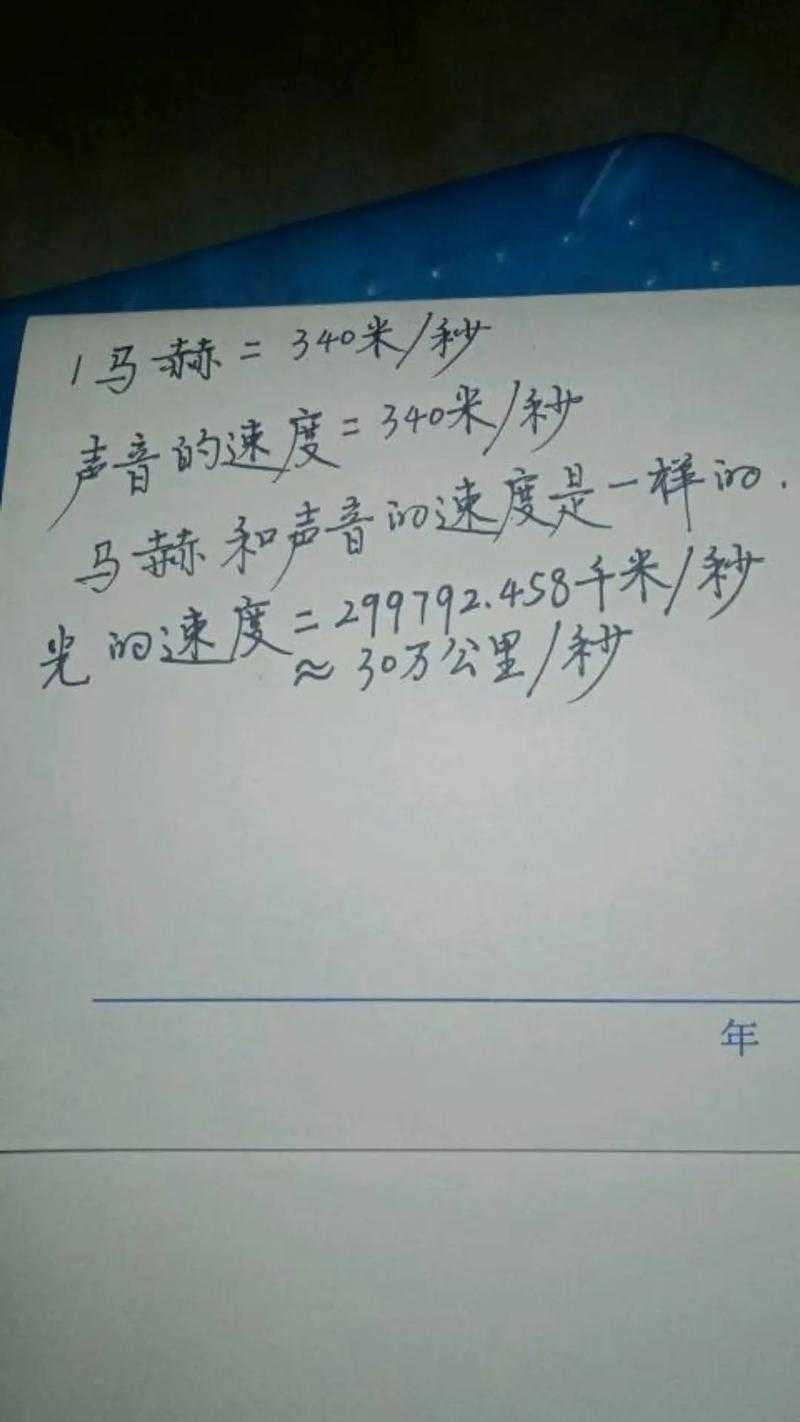 1马赫=340米/秒
声音的速度=340米/秒
马赫和声音的速度是一样的.
光的速度=299792.458千米/秒
≈30万公里/秒
年